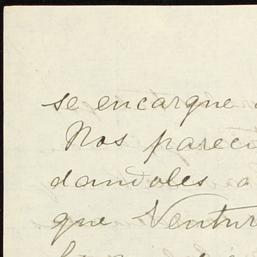 se encargue
Nos pareci
dandoles a
que Ventur